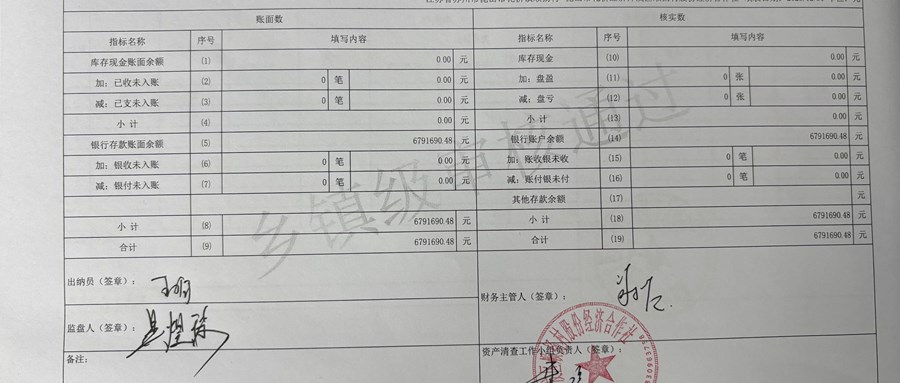 账面数 核实数
指标名称 序号 填写内容 指标名称 序号 填写内容
库存现金账面余额 (1) 0.00 元 库存现金 (10) 0.00 元
加：已收未入账 (2) 0 笔 0.00 元 加：盘盈 (11) 0 张 0.00 元
减：已支未入账 (3) 0 笔 0.00 元 减：盘亏 (12) 0 张 0.00 元
小 计 (4) 0.00 元 小 计 (13) 0.00 元
银行存款账面余额 (5) 6791690.48 元 银行账户余额 (14) 6791690.48 元
加：银收未入账 (6) 0 笔 0.00 元 加：账收银未收 (15) 0 笔 0.00 元
减：银付未入账 (7) 0 笔 0.00 元 减：账付银未付 (16) 0 笔 0.00 元
其他存款余额 (17) 元
小 计 (8) 6791690.48 元 小 计 (18) 6791690.48 元
合计 (9) 6791690.48 元 合计 (19) 6791690.48 元
乡镇级审核通过
出纳员（签章）： 财务主管人（签章）：
监盘人（签章）：
备注： 资产清查工作小组负责人（签章）：
村股份经济合作社